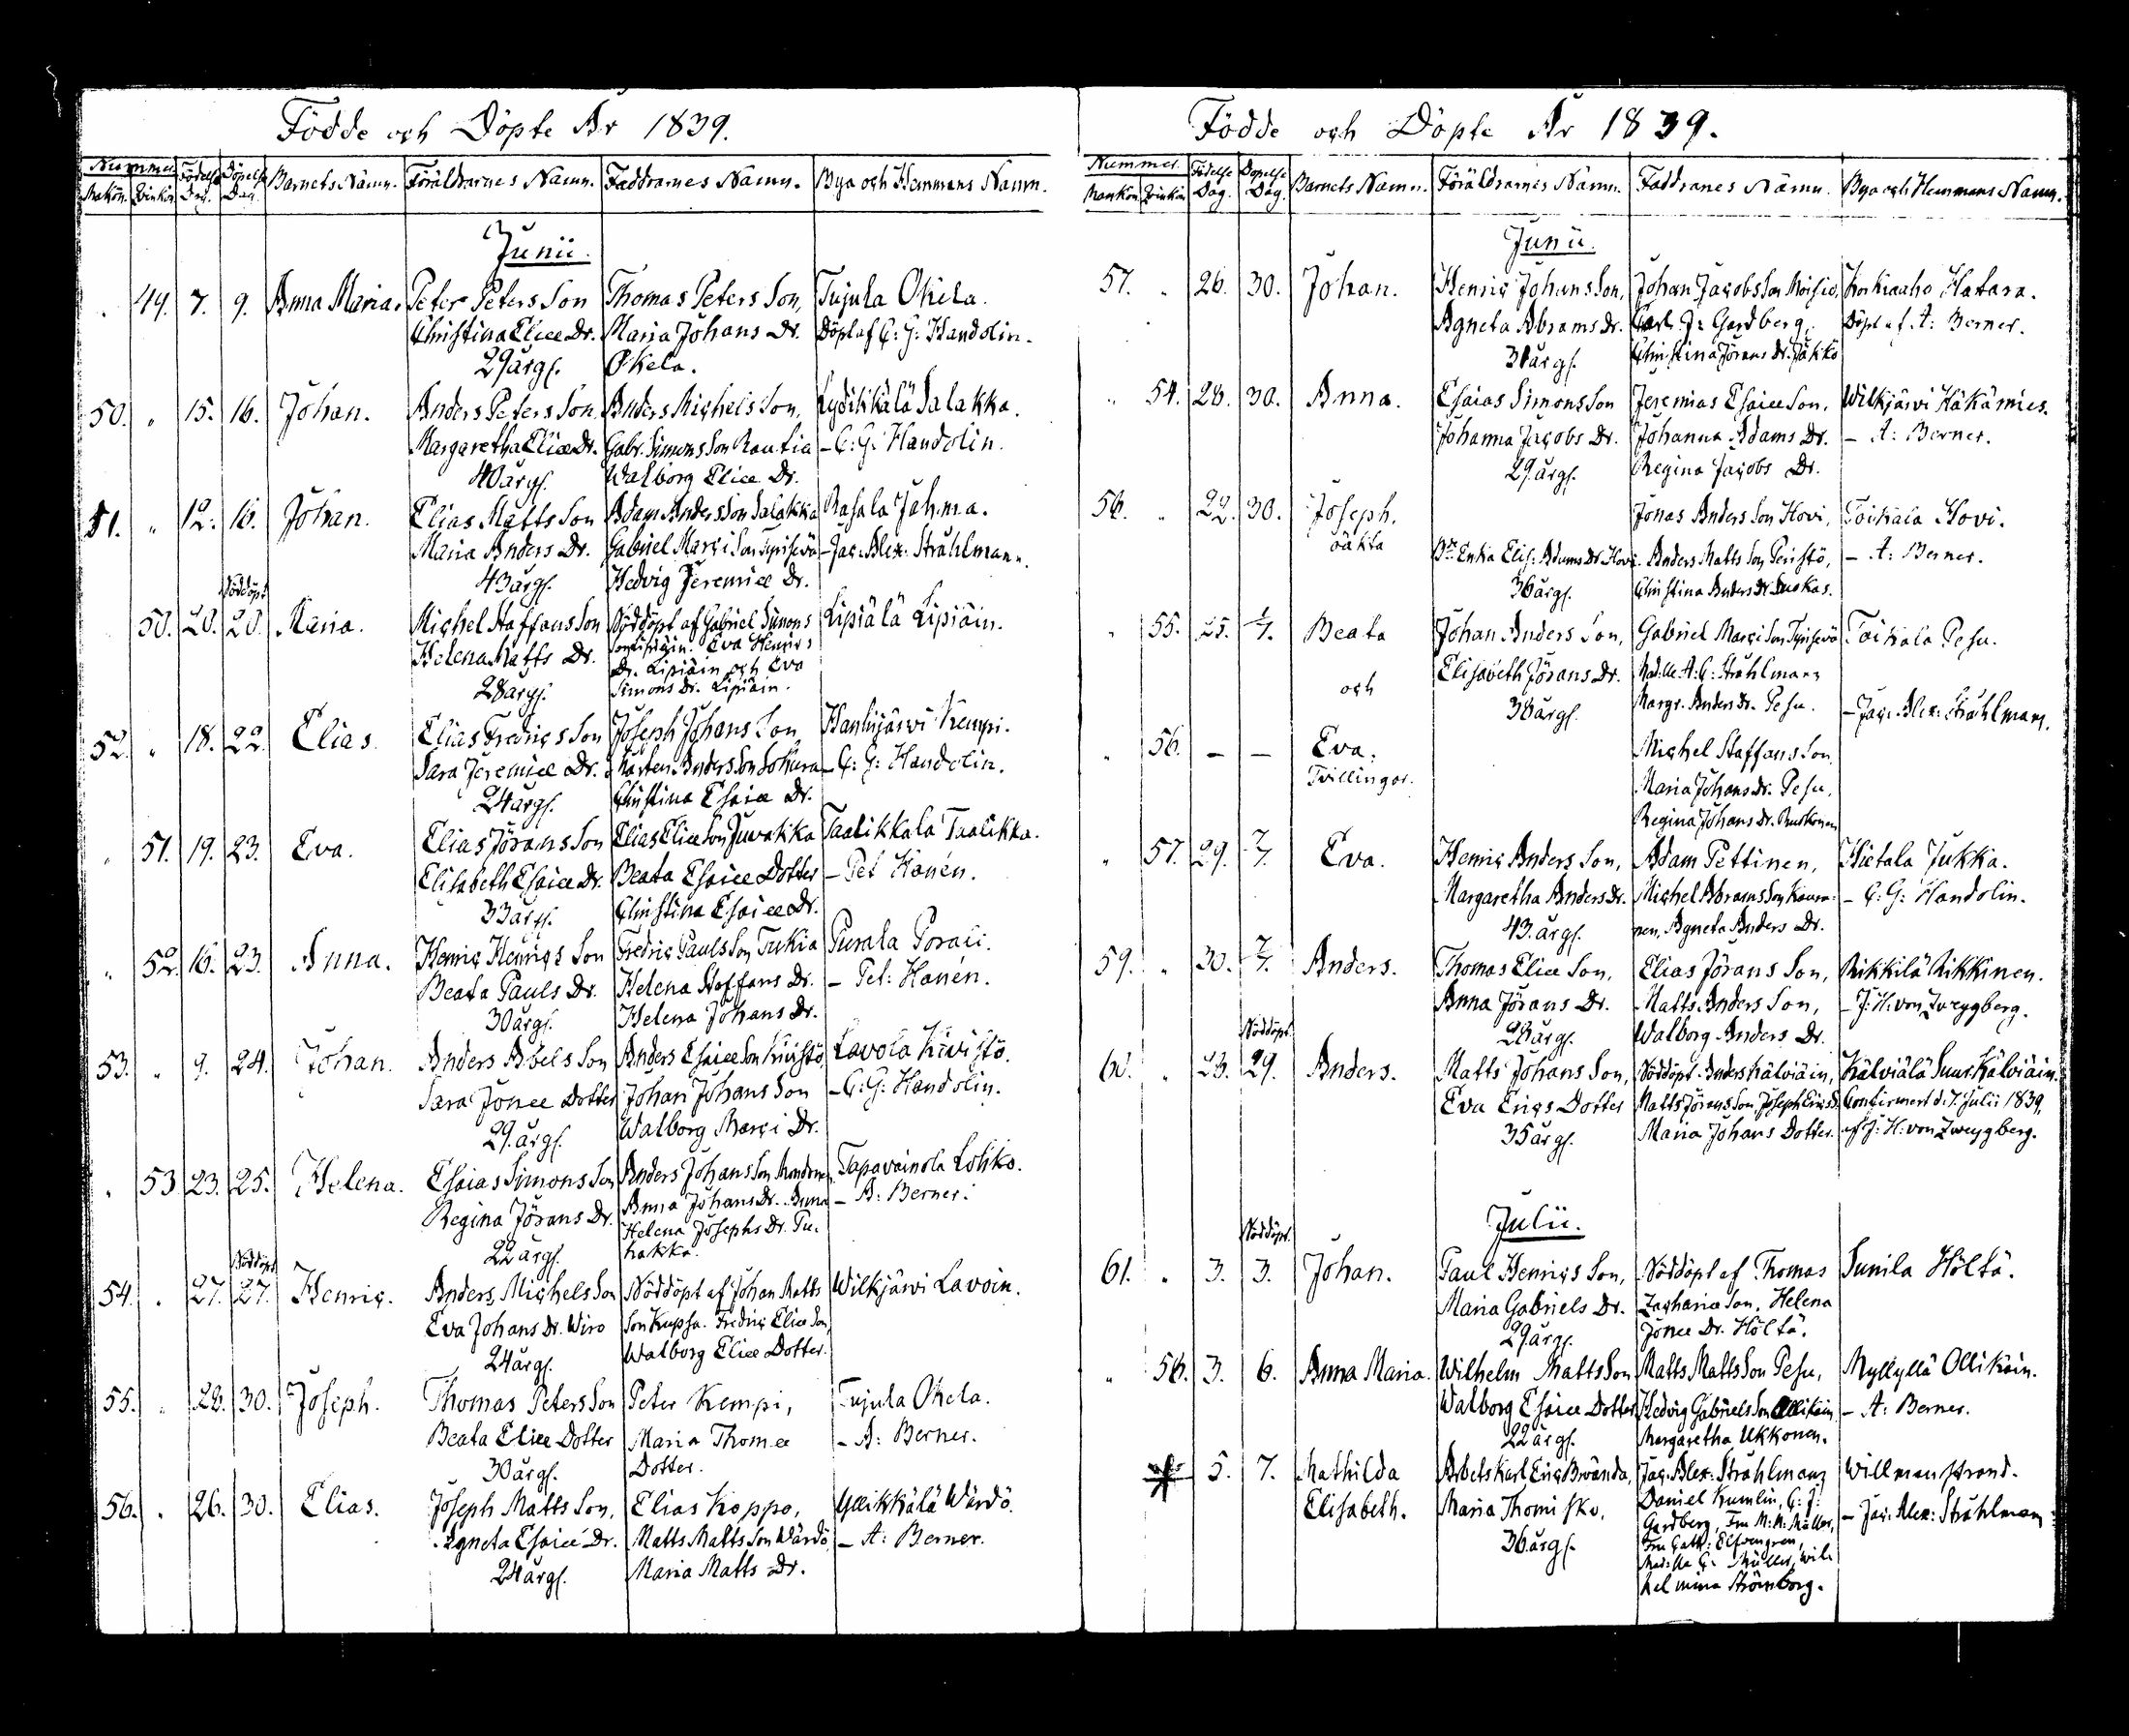 Födde och Döpte År 1839.
Nummer Födelse Dag. Döpelse Dag. Barnets Namn. Föräldrarnes Namn. Faddrarnes Namn. Bya och Hemmans Namn.
Mankön. Qvinkön.
Junii.
" 49. 7. 9. Anna Maria. Peter Peters Son Thomas Peters Son, Tujula Okela.
Christina Eliæ Dr. Maria Johans Dr. Döpt af C: G: Handolin.
29 årg. Okela.
50. " 15. 16. Johan. Anders Peters Son. Anders Michels Son, Kydikkälä Salakka.
Margaretha Eliæ Dr. Gabr. Simons Son Rautia – C: G: Handolin.
40 årg. Walborg Eliæ Dr.
51. " 12. 16. Johan. Elias Matts Son Adam Anders Son Salakka Rasala Jahma.
Maria Anders Dr. Gabriel Marci Son – Jac: Alex: Stråhlman.
43 årg. Hedvig Jeremiæ Dr.
Nöddöpt
50. 20. 20. Maria. Michel Staffans Son Nöddöpt af Gabriel Simons Lipiälä Lipiäin.
Helena Matts Dr. Son Lipiäin. Eva Henrics
Dr. Lipiäin och Eva
28 årg. Simons Dr. Lipiäin.
52. " 18. 22. Elias. Elias Fredrics Son Joseph Johans Son, Hanhijärvi Kempi.
Sara Jeremiæ Dr. Mårten Anders Son Sohura – C: G: Handolin.
24 årg. Christina Esaiæ Dr.
" 51. 19. 23. Eva. Elias Jörans Son Elias Eliæ Son Juvakka Taalikkala Taalikka.
Elisabeth Esaiæ Dr. Beata Esaiæ Dotter – Pet Hanén.
33 årg. Christina Esaiæ Dr.
" 52. 16. 23. Anna. Henric Henrics Son Fredric Pauls Son Tukia Purala Porali.
Beata Pauls Dr. Helena Staffans Dr. – Pet: Hanén.
30 årg. Helena Johans Dr.
53. " 9. 24. Johan. Anders Abels Son Anders Esaiæ Son Kivistö, Lavola Kivistö.
Sara Jonæ Dotter Johan Johans Son – C: G: Handolin.
29. årg. Walborg Marci Dr.
" 53 23. 25. Helena. Esaias Simons Son Anders Johans Son Tapavainola Lohko.
Regina Jörans Dr. Anna Johans Dr. Anna – A: Berner.
Helena Josephs Dr. Tu-
22 årg. hakka.
Nöddöpt
54. " 27. 27. Henric. Anders Michels Son Nöddöpt af Johan Matts Wilkjärvi Lavoin.
Eva Johans Dr. Wiro Son Kupsa. Fredric Eliæ Son,
24 årg. Walborg Eliæ Dotter.
55. " 28. 30. Joseph. Thomas Peters Son Peter Kempi, Tujula Okela.
Beata Eliæ Dotter Maria Thomæ – A: Berner.
30 årg. Dotter.
56. " 26. 30. Elias. Joseph Matts Son, Elias Koppo, Yllikkälä Wärdö.
Agneta Esaiæ Dr. Matts Matts Son Wärdö, – A: Berner.
24 årg. Maria Matts Dr.
Födde och Döpte År 1839.
Nummer. Födelse Dag. Döpelse Dag. Barnets Namn. Föräldrarnes Namn. Faddranes Namn. Bya och Hemmans Namn.
Mankön Qvinkön
Junii.
57. " 26. 30. Johan. Henric Johans Son, Johan Jacobs Son Moisio, Korkiaaho Hatara.
Agneta Abrams Dr. Carl J: Gardberg, Döpt af A: Berner.
31 årg. Christina Jörans Dr. Jäkkö
" 54. 28. 30. Anna. Esaias Simons Son Jeremias Esaiæ Son, Wilkjärvi Häkämies.
Johanna Jacobs Dr. Johanna Adams Dr. – A: Berner.
29. årg. Regina Jacobs Dr.
56. " 22. 30. Joseph. Jonas Anders Son Hovi, Toikala Hovi.
oäkta Enka Elis: Adams Dr. Hovi. Anders Matts Son Peristö, – A: Berner.
36 årg. Christina Anders Dr.
" 55. 25. 1/7. Beata Johan Anders Son, Gabriel Marci Son Toikala Pesu.
Elisabeth Jörans Dr. A: C: Stråhlman
och 38 årg. Margr. Anders Dr. Pesu. – Jac: Alex: Stråhlman.
" 56. – – Eva. Michel Staffans Son
Tvillingar. Maria Johans Dr. Pesu,
Regina Johans Dr.
" 57. 29. 7/7. Eva. Henric Anders Son, Adam Pettinen, Hietala Jukka.
Margaretha Anders Dr. Michel Abrams Son – C: G: Handolin.
43. årg. nen, Agneta Anders Dr.
59. " 30. 7/7. Anders. Thomas Eliæ Son, Elias Jörans Son, Rikkilä Rikkinen.
Anna Jörans Dr. Matts Anders Son, – J: H: von Zweygberg.
28 årg. Walborg Anders Dr.
Nöddöpt.
60. " 23. 29. Anders. Matts Johans Son, Nöddöpt. Anders Kälviäin, Kälviälä Suur Kälviäin.
Eva Erics Dotter Matts Jörans Son, Joseph Confirmert d. 7. Julii 1839,
35 årg. Maria Johans Dotter. af J: H: von Zweygberg.
Julii.
Nöddöpt.
61. " 3. 3. Johan. Paul Henrics Son, Nöddöpt af Thomas Sunila Höltä.
Maria Gabriels Dr. Zachariæ Son, Helena
29 årg. Jonæ Dr. Höltä.
" 58. 3. 6. Anna Maria. Wilhelm Matts Son Matts Matts Son Pesu, Myllyllä Ollikain.
Walborg Esaiæ Dotter Hedvig Gabriels Son Ollikain – A: Berner.
22 årg. Margaretha Ukkonen.
5. 7. Mathilda Arbets Karl Eric Brända, Jac: Alex: Stråhlman, Willmanstrand.
Elisabeth. Maria Thomi sko, Daniel Kumlin, C: J: – Jac: Alex: Stråhlman.
Gardberg, Fru M: M: Müller,
36 årg. Fru Cath: Elfvengren,
Müller, Wil-
helmina Strömborg.